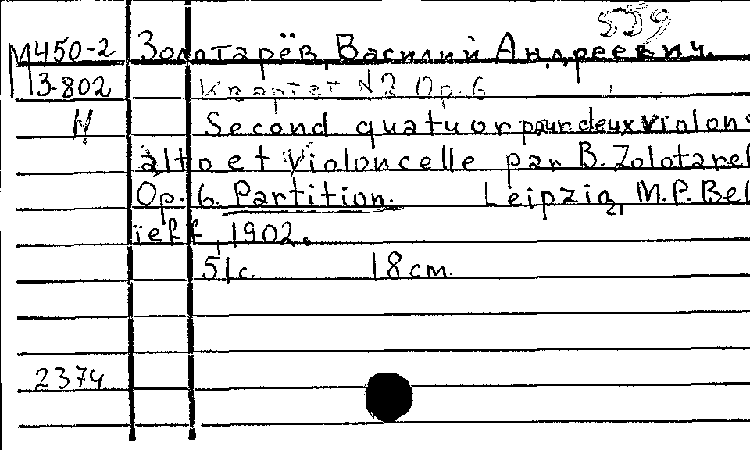 559
М450-2 Золотарёв, Василий Андреевич.
З-802 Квартет N2 Op. 6
N Second quatuor pour deux violons
alto et violoncelle par B. Zolotaref
Op. 6. Partition. Leipzig, M.P. Bel
ïeff, 1902.
51 c. 18 cm.
2374